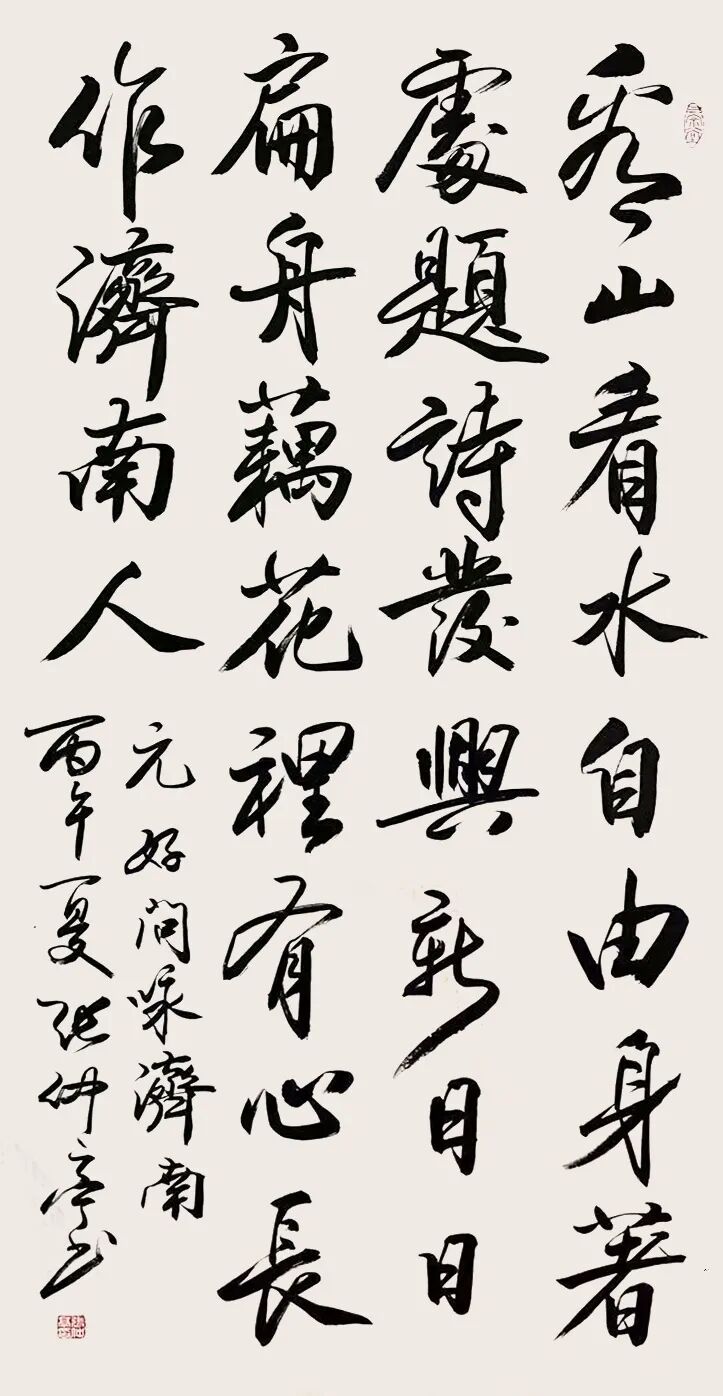 看山看水自由身著
處題詩發興新日日
扁舟藕花裡有心長
作濟南人
元好問咏濟南
丙午夏張仲亭書